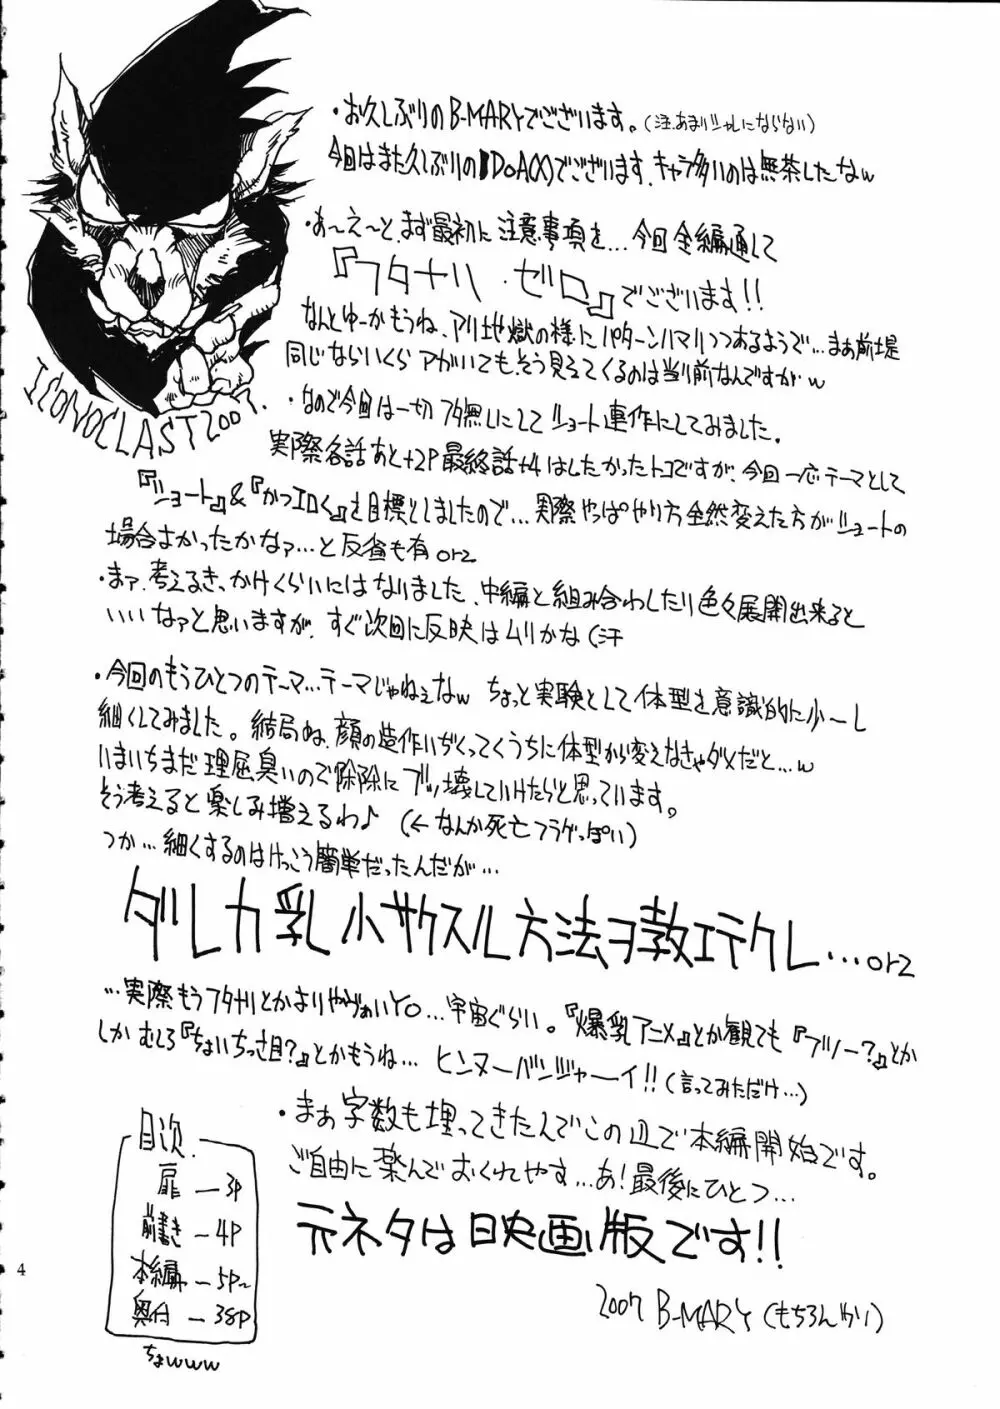 ・お久しぶりのB-MARYでございます。(注.あまりシャレにならない)
今回はまた久しぶりのDOA(X)でございます、キャラ多いのは無茶したなw
・あ〜え〜と、まず最初に注意事項を…今回全編通して
『フタナリ・ゼロ』でございます!!
なんとゆーかもうね、アリ地獄の様にパターンハマりつつあるようで…まあ前提
同じならいくらアガいても、そう見えてくるのは当り前なんですがw
・なので今回は一切フタ無しにしてショート連作にしてみました。
実際各話あと+2P最終話+4はしたかったトコですが、今回一応テーマとして
『ショート』&『かつエロく』を目標としましたので…実際やっぱやり方全然変えた方がショートの
場合よかったかなァ…と反省も有orz
・まァ、考えるきっかけくらいにはなりました、中編と組み合わしたり色々展開出来ると
いいなァと思いますが、すぐ次回に反映はムリかな(汗
・今回のもうひとつのテーマ…テーマじゃねぇなw ちょっと実験として体型を意識的に少〜し
細くしてみました。結局ね、顔の造作いぢくってくうちに体型から変えなきゃダメだと…w
いまいちまだ理屈臭いので除除にブッ壊していけたらと思っています。
そう考えると楽しみ増えるわ♪ (←なんか死亡フラグっぽい)
つか…細くするのはけっこう簡単だったんだが…
ダレカ乳小サクスル方法ヲ教エテクレ…orz
…実際もうフタナリとかよりやヴぁいYO…宇宙ぐらい。『爆乳アニメ』とか観ても『フツー?』とか
しかむしろ『ちょいちっさ目?』とかもうね… ヒンヌーバンジャーイ!!(言ってみただけ…)
・まぁ字数も埋ってきたんでこの辺で本編開始です。
ご自由に楽んでおくれやす…あ!最後にひとつ…
元ネタは映画版です!!
2007 B-MARY(もちろん
ICONOCLAST2007.
目次
扉―3P
前書き―4P
本編―5P〜
奥付―38P
ちょwww
4